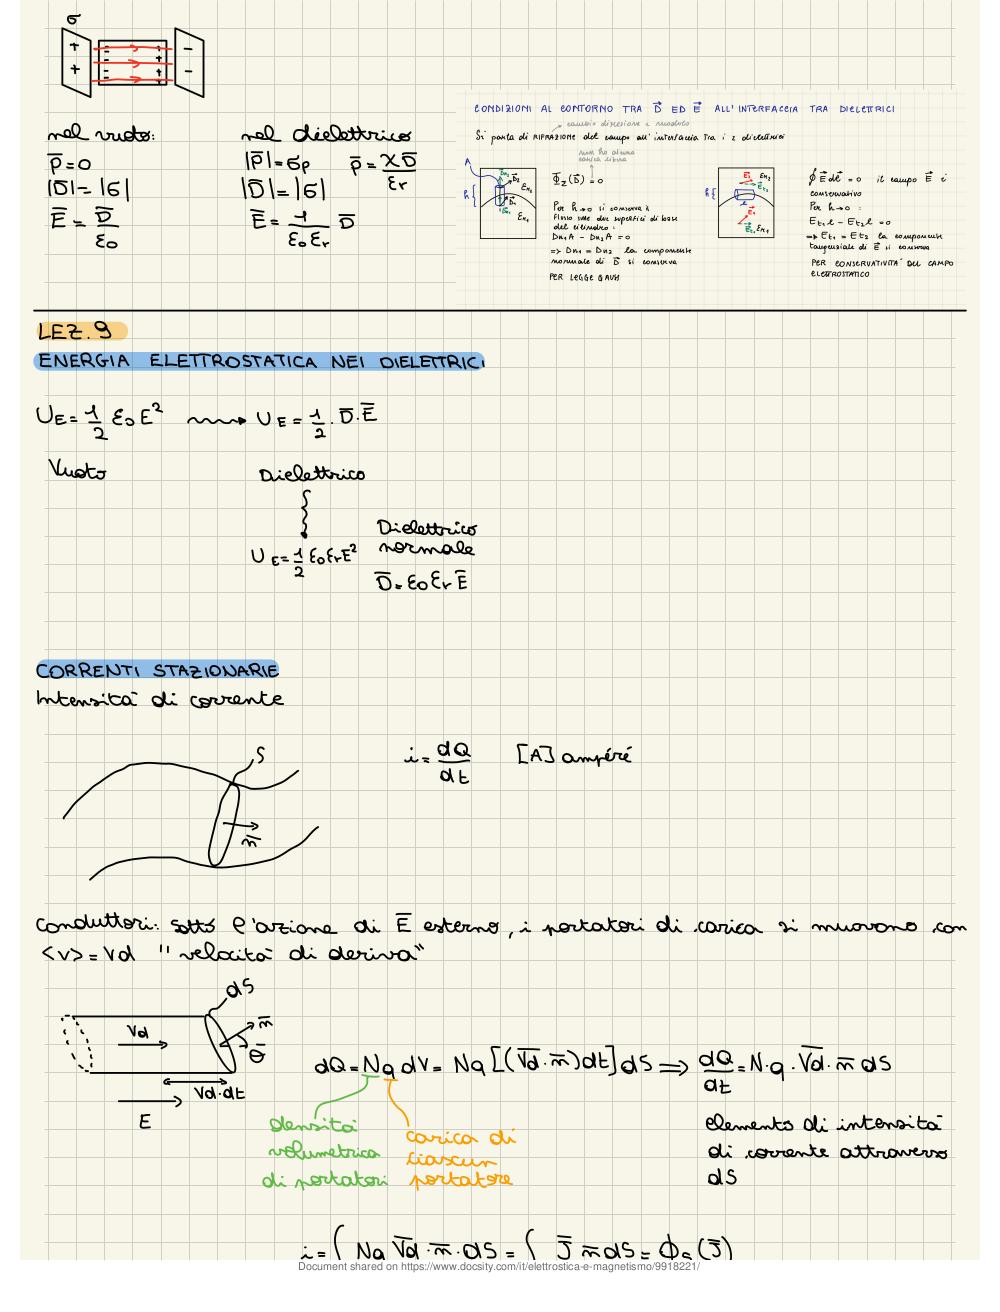 σ
+ −
+ −
nel vuoto:
P̅=0
|D̅|=|σ|
E̅ = D̅/ε0
nel dielettrico
|P̅|=σp P̅=χD̅/εr
|D̅|=|σ|
E̅ = 1/(ε0εr) D̅
CONDIZIONI AL CONTORNO TRA D⃗ ED E⃗ ALL'INTERFACCIA TRA DIELETTRICI
cambio direzione e modulo
Si parla di RIFRAZIONE del campo all'interfaccia tra i 2 dielettrici
non ho alcuna
carica libera
A
h
Φ_Σ(D̅)=0
Per h→0 si conserva il
flusso sulle due superfici di base
del cilindro:
Dn1A − Dn2A = 0
=> Dn1 = Dn2 la componente
normale di D̅ si conserva
PER LEGGE GAUSS
h
∮E⃗dl⃗ = 0 il campo E⃗ è
conservativo
Per h→0:
Et1l − Et2l = 0
=> Et1 = Et2 la componente
tangenziale di E⃗ si conserva
PER CONSERVATIVITÀ DEL CAMPO
ELETTROSTATICO
LEZ.9
ENERGIA ELETTROSTATICA NEI DIELETTRICI
UE=1/2 ε0E² ⟿ UE=1/2·D̅·E̅
Vuoto Dielettrico
UE=1/2 ε0εrE²
Dielettrico
normale
D̅=ε0εrE̅
CORRENTI STAZIONARIE
Intensità di corrente
S
n̅
i=dQ/dt [A] ampéré
Conduttori: sotto l'azione di E̅ esterno, i portatori di carica si muovono con
<v>=vd "velocità di deriva"
dS
n̅
θ
Vd
Vd·dt
E
dQ=Nq dV= Nq[(V̅d·n̅)dt]dS ⟹ dQ/dt=N·q·V̅d·n̅ dS
densità
volumetrica
di portatori
carica di
ciascun
portatore
elemento di intensità
di corrente attraverso
dS
i=∫ Nq V̅d·n̅·dS = ∫ J̅ n̅dS= Φs(J̅)
Document shared on https://www.docsity.com/it/elettrostica-e-magnetismo/9918221/